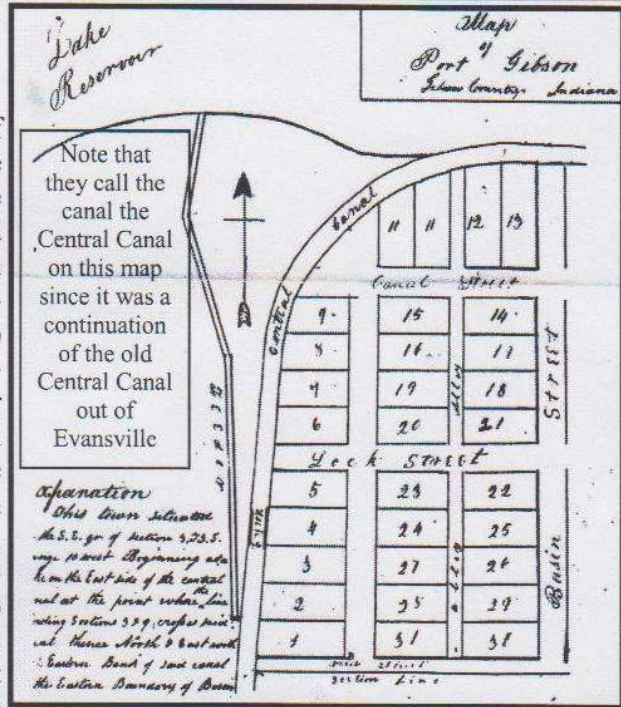 Lake
Reservoir
Map
of
Port Gibson
Gibson County Indiana
Note that
they call the
canal the
Central Canal
on this map
since it was a
continuation
of the old
Central Canal
out of
Evansville
Central Canal
11 11 12 13
Canal Street
9 15 14
8 16 17
7 19 18
6 20 21
Alley
Street
Lock Street
5 23 22
4 24 25
3 27 26
2 29
1 31
Alley
Basin
Section Line
Explanation
This town situated
the S.E. qr of section
west Beginning
on the East side of the central
nal at the point where the line
Sections 3 & 9, crosses said
thence North & East with
Eastern Bank of said canal
the Eastern Boundary of Basin